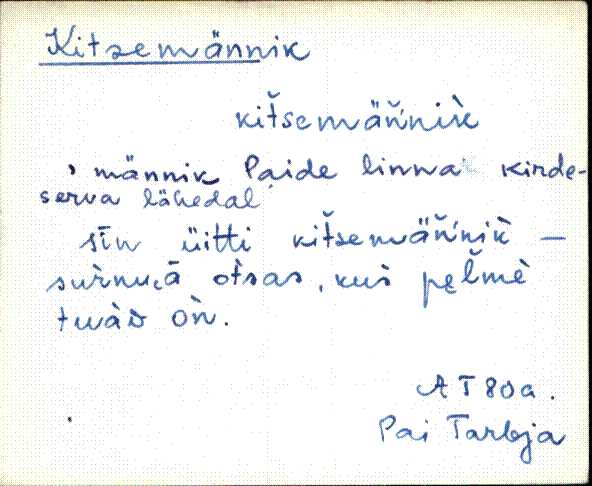 Kitsemännik
kit̆semän̆nik̀
, männik Paide linna kirde-
serva lähedal
sīn üitti kit̆semän̆nik̀ –
sur̀nu,ā ot̀sas, kus̀ pęl̆mè
twàs òn.
AT 80a.
Pai Tarbja